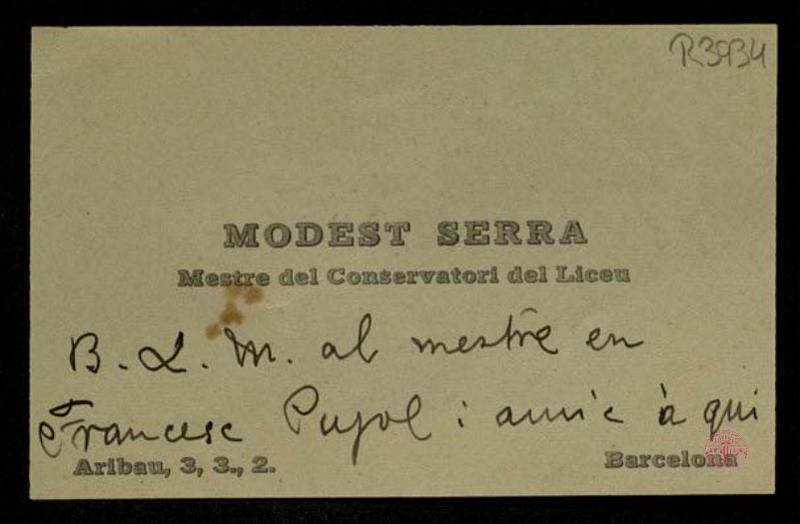 R3934
MODEST SERRA
Mestre del Conservatori del Liceu
B. L. M. al mestre en
Francesc Pujol i amic à qui
Aribau, 3, 3., 2.
Barcelona